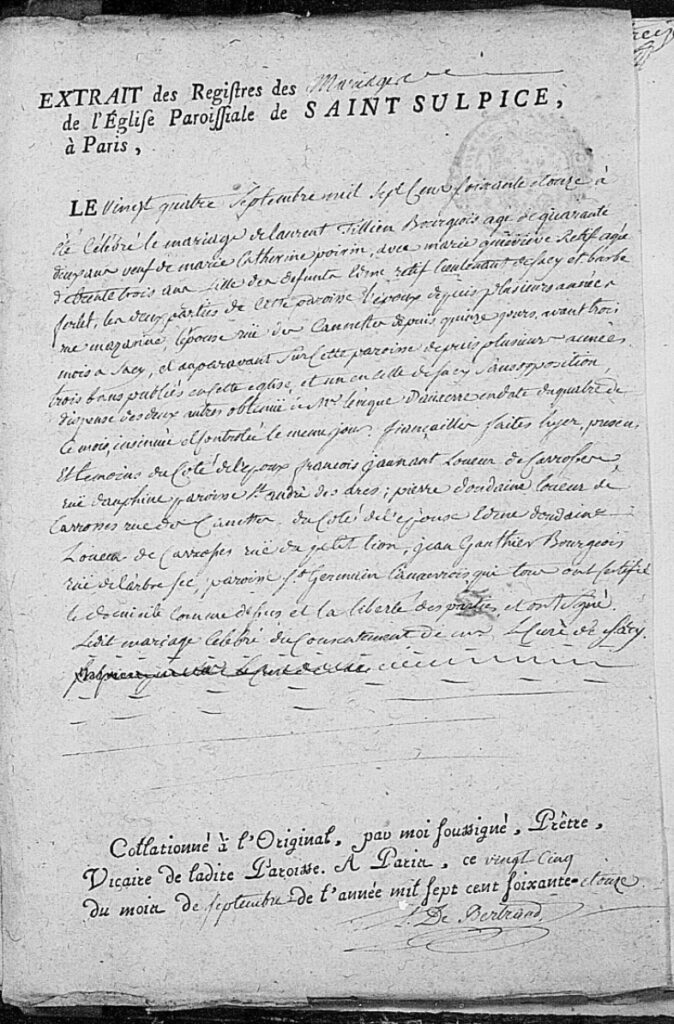 EXTRAIT des Regiſtres des Mariages
de l'Égliſe Paroiſſiale de SAINT SULPICE,
à Paris,
LE vingt quatre Septembre mil Sept Cens Soixante et onze à
été Célébré le mariage de laurent Tillien Bourgeois agé de quarante
deux ans veuf de marie Catherine poirin, avec marie Géneviève Retif agée
de trente trois ans fille des defunts Edme retif lieutenant de Sacy et barbe
forlet, les deux parties de cette paroisse l'époux depuis plusieurs années
rue mazarine, l'épouse rüe des Cannettes depuis quinze jours, avant trois
mois a Sacy, et auparavant Sur Cette paroisse depuis plusieurs années.
trois bans publiés en cette eglise, et un en celle de Sacy Sans opposition,
dispense des deux autres obtenue de Mgr l'évêque D'auxerre en date du quatre de
ce mois, insinuée et Controlée le meme jour. fiançailles faites hyer, presens
Et temoins du Coté de l'epoux françois jaunant Loueur de Carrosses
rüe dauphine paroisse St. andré des arcs; pierre doudaine loueur de
Carrosses rue des Canettes, du Coté de l'épouse Edme doudaine
Loueur de Carrosses rüe du petit lion, jean Gauthier Bourgeois
rüe de l'arbre Sec, paroisse St. Germain L'auxerrois qui tous ont certifié
le domicile Comme dessus et la liberté des parties et ont Signé.
Ledit mariage Célébré du Consentement de Curé de Sacy.
Collationné à l'Original, par moi ſouſſigné, Prêtre,
Vicaire de ladite Paroisse. A Paris, ce vingt cinq
du mois de septembre de l'année mil ſept cent ſoixante-et onze
De Bertrand